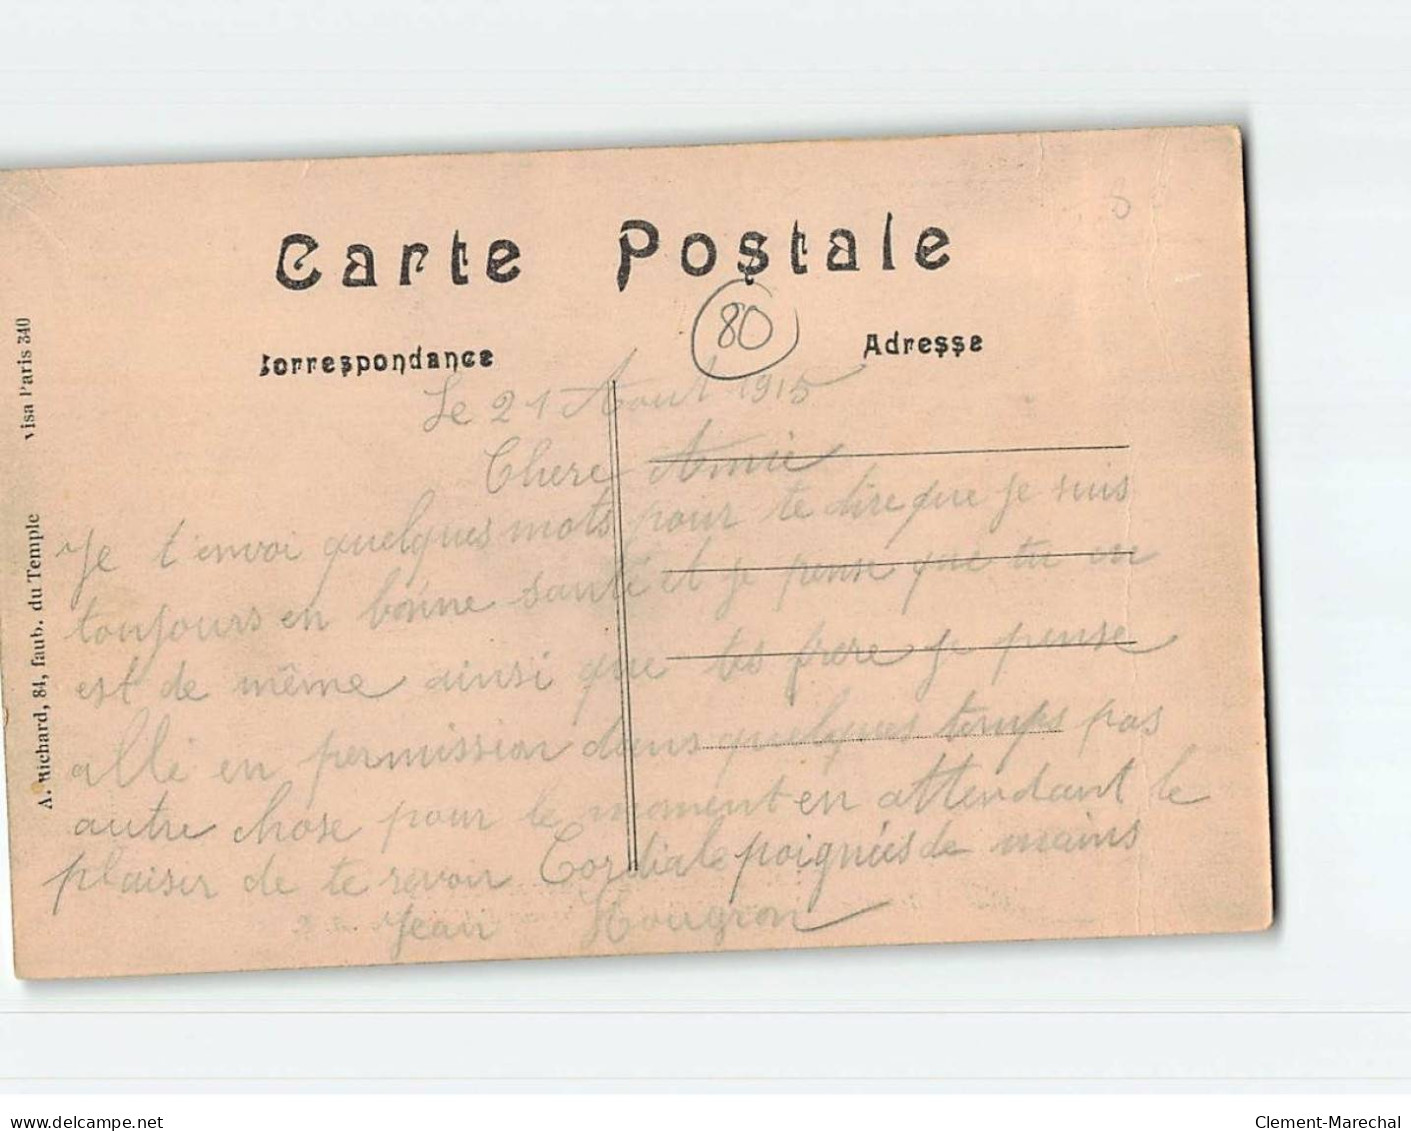 Carte Postale
80
Correspondance
Adresse
A. Michard, 84, faub. du Temple visa Paris 340
Le 21 Aout 1915
Chere Amie
Je t'envoi quelques mots pour te dire que je suis
toujours en bonne santé et je pense que tu en
est de même ainsi que tes frere je pense
allé en permission dans quelques temps pas
autre chose pour le moment en attendant le
plaisir de te revoir Cordiale poignées de mains
Jean Hougron
delcampe.net
Clement-Marechal